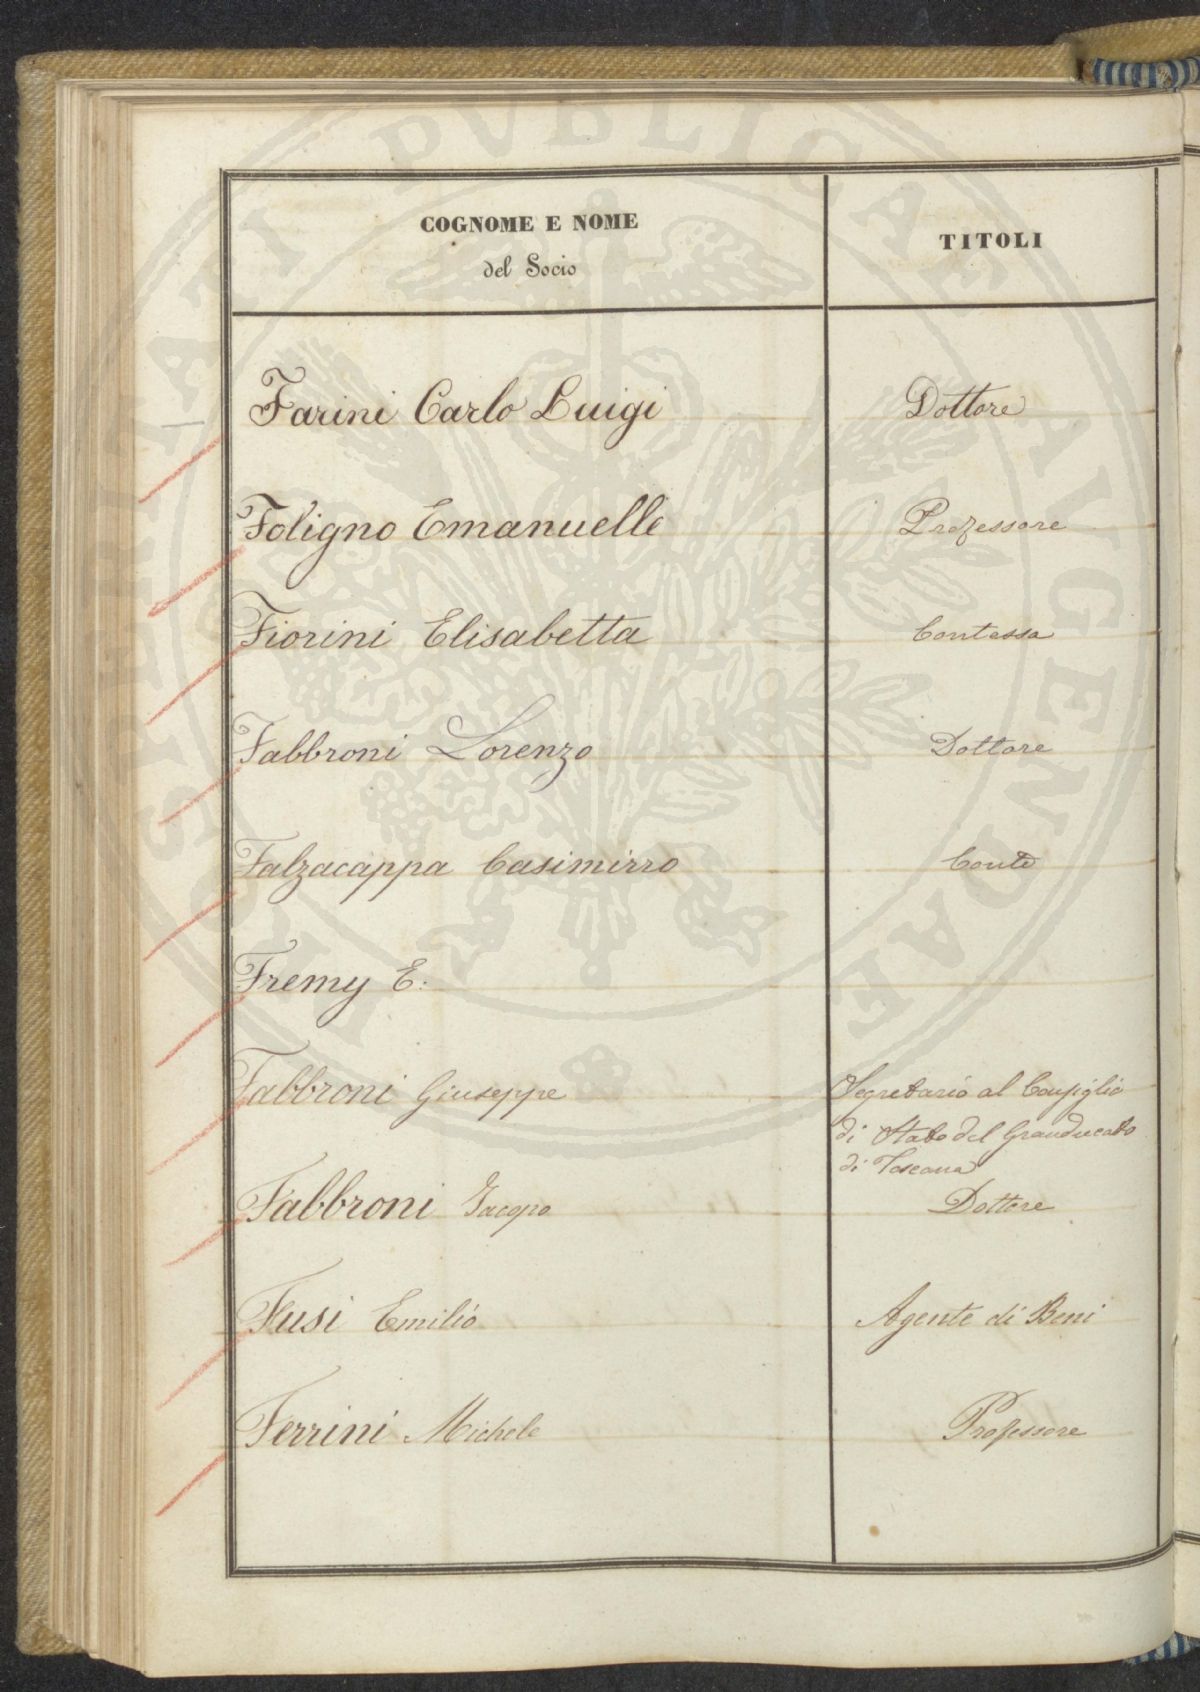 COGNOME E NOME
del Socio
TITOLI
Farini Carlo Luigi
Dottore
Foligno Emanuelle
Professore
Fiorini Elisabetta
Contessa
Fabbroni Lorenzo
Dottore
Falzacappa Casimirro
Conte
Fremy E.
Fabbroni Giuseppe
Segretario al Consiglio
di Stato del Granducato
di Toscana
Fabbroni Jacopo
Dottore
Fusi Emilio
Agente di Beni
Ferrini Michele
Professore